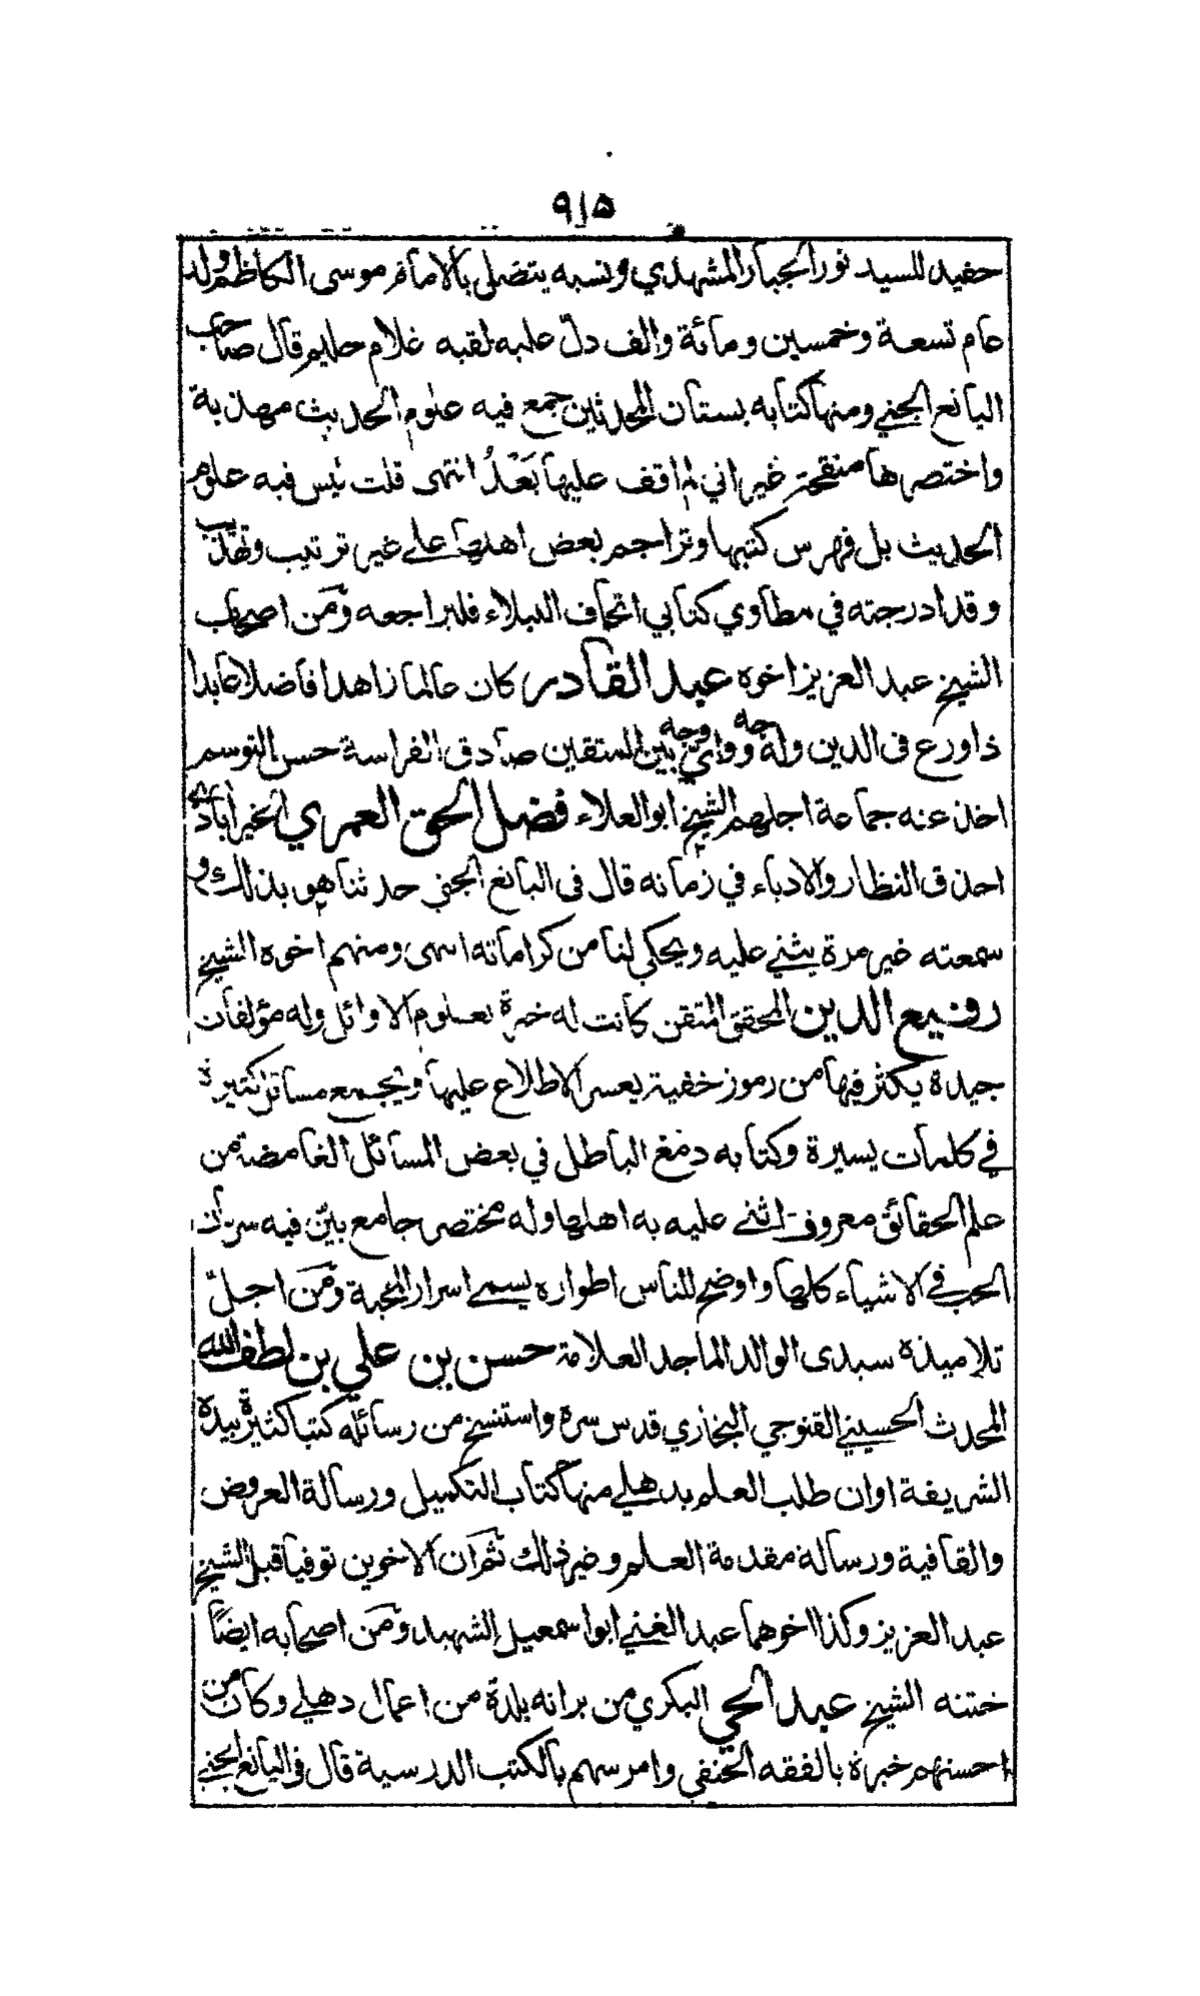 ٩١٥
حفيد للسيد نور الجبار المشهدي ونسبه يتصل بالامام موسى الكاظم ولد
عام تسعة وخمسين ومائة والف دلّ عليه لقبه غلام حليم قال صاحب
اليانع الجني ومنها كتابه بستان المحدثين جمع فيه علوم الحديث مهذبة
واختصرها منقحة غير اني لم اقف عليها بَعْدُ انتهى قلت ليس فيه علوم
الحديث بل فهرس كتبها وتراجم بعض اهلها على غير ترتيب وتهذيب
وقد ادرجته في مطاوي كتابي اتحاف النبلاء فليراجعه ومن اصحاب
الشيخ عبد العزيز اخوه عبد القادر كان عالما زاهدا فاضلا عابدا
ذا ورع في الدين وله جه ووايّ وجه بين المتقين صادق الفراسة حسن التوسم
اخذ عنه جماعة اجلهم الشيخ ابو العلاء فضل الحق العمري الخيرابادي
احذق النظار والادباء في زمانه قال في اليانع الجني حدثنا هو بذلك و
سمعته غير مرة يثني عليه ويحكي لنا من كراماته انتهى ومنهم اخوه الشيخ
رفيع الدين المحقق المتقن كانت له خبرة بعلوم الاوائل وله مؤلفات
جيدة يكثر فيها من رموز خفية يعسر الاطلاع عليها ويجمع مسائل كثيرة
في كلمات يسيرة وكتابه دمغ الباطل في بعض المسائل الغامضة من
علم الحقائق معروف اثنى عليه به اهلها وله مختصر جامع بيّن فيه سريان
الحب في الاشياء كلها واوضح للناس اطواره يسمى اسرار المحبة ومن اجلّ
تلاميذه سيدى الوالد الماجد العلامة حسن بن علي بن لطف الله
المحدث الحسيني القنوجي البخاري قدس سره واستنسخ من رسائله كتبا كثيرة بيده
الشريفة اوان طلب العلم بدهلي منها كتاب التكميل ورسالة العروض
والقافية ورسالة مقدمة العلم وغير ذلك ثم ان الاخوين توفيا قبل الشيخ
عبد العزيز وكذا اخوهما عبد الغني ابو اسمعيل الشهيد ومن اصحابه ايضًا
ختنه الشيخ عبد الحي البكري من برانه بلدة من اعمال دهلي وكان من
احسنهم خبرة بالفقه الحنفي وامرسهم بالكتب الدرسية قال في اليانع الجني